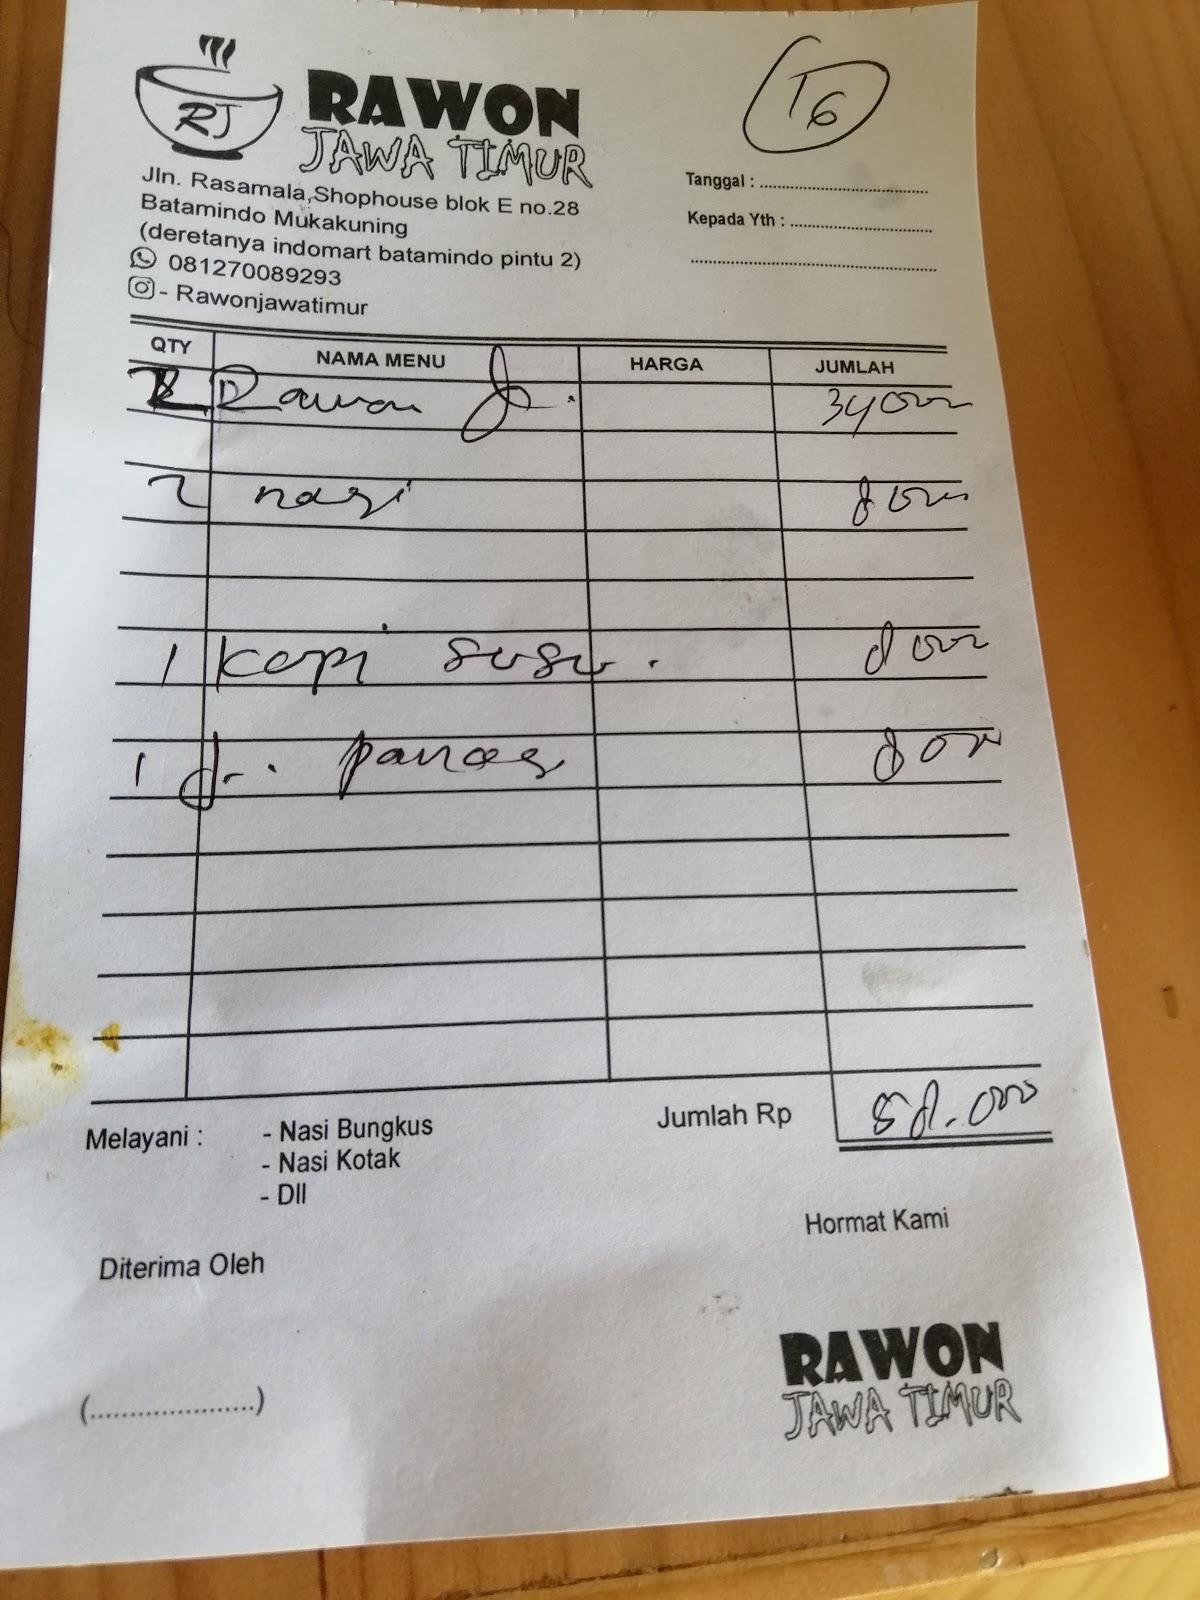 RJ
RAWON
JAWA TIMUR
16
Jln. Rasamala,Shophouse blok E no.28
Batamindo Mukakuning
(deretanya indomart batamindo pintu 2)
081270089293
- Rawonjawatimur
Tanggal : ..........................................
Kepada Yth : ...................................
.............................................................
QTY NAMA MENU HARGA JUMLAH
2 Rawon 34000
2 nasi 8000
1 kopi susu. 8000
1 panas 8000
Jumlah Rp 58.000
Melayani : - Nasi Bungkus
- Nasi Kotak
- Dll
Hormat Kami
Diterima Oleh
(......................)
RAWON
JAWA TIMUR